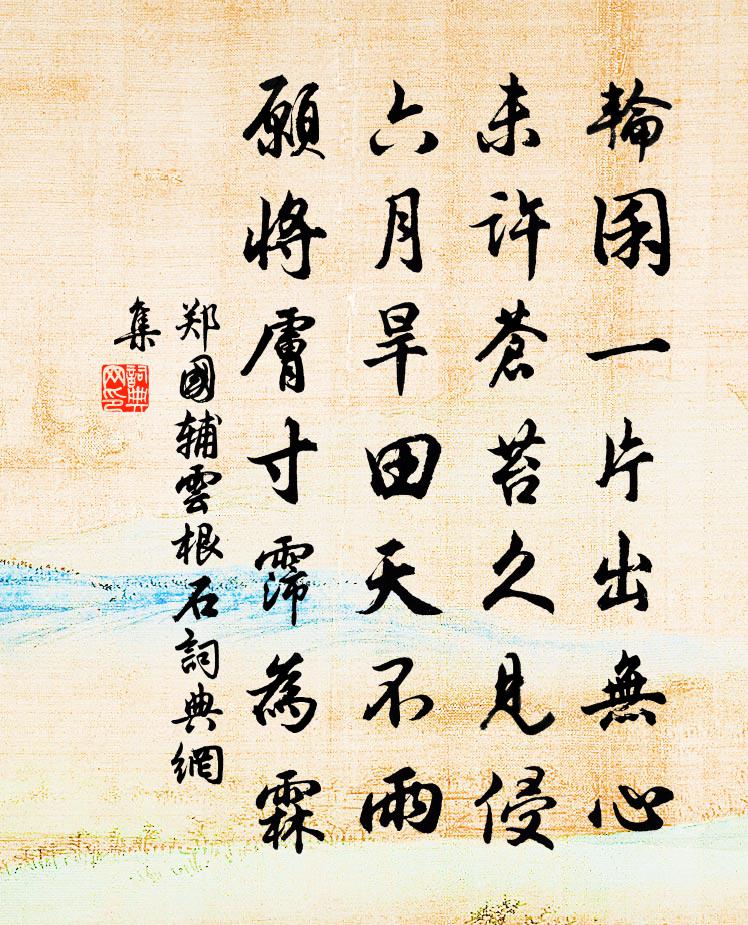 輪囷一片出無心
未許蒼苔久見侵
六月旱田天不雨
願將膚寸霈為霖
郑國辅雲根石詞典網
集
詞典
网印